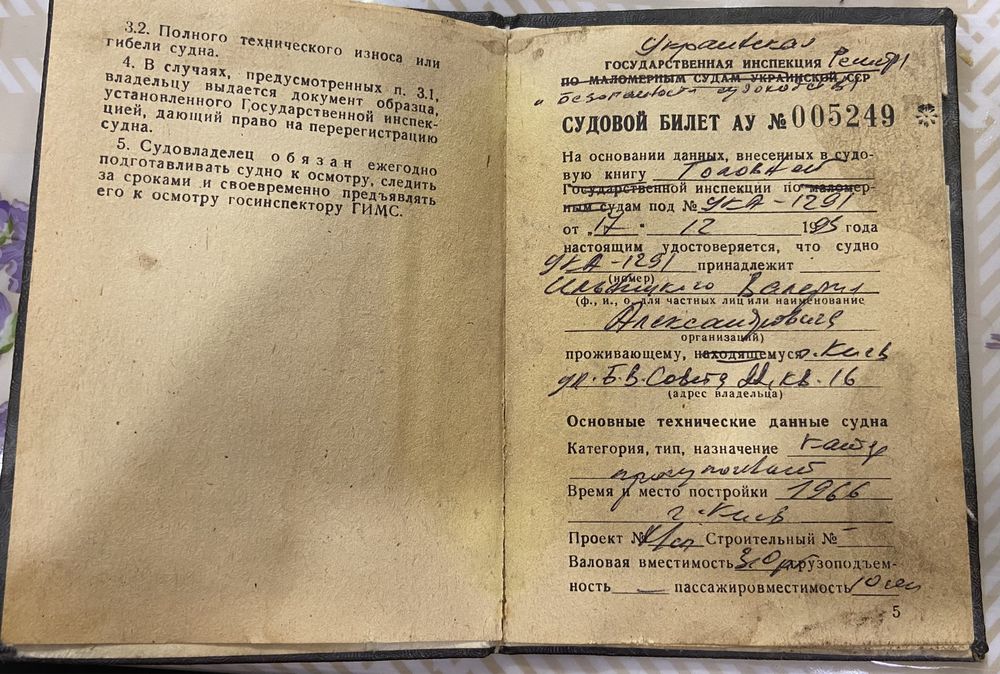 3.2. Полного технического износа или
гибели судна.
4. В случаях, предусмотренных п. 3.1,
владельцу выдается документ образца,
установленного Государственной инспек-
цией, дающий право на перерегистрацию
судна.
5. Судовладелец обязан ежегодно
подготавливать судно к осмотру, следить
за сроками и своевременно предъявлять
его к осмотру госинспектору ГИМС.
Украинская
ГОСУДАРСТВЕННАЯ ИНСПЕКЦИЯ Регистр
ПО МАЛОМЕРНЫМ СУДАМ УКРАИНСКОЙ ССР
безопасности судоходства
СУДОВОЙ БИЛЕТ АУ № 005249
На основании данных, внесенных в судо-
вую книгу Головной
Государственной инспекции по маломер-
ным судам под № УКА-1291
от „17" 12 1995 года
настоящим удостоверяется, что судно
УКА-1291 принадлежит
(номер)
Ильницкого Валерия
(ф., и., о. для частных лиц или наименование
Александровича
организации)
проживающему, находящемуся г. Киев
ул. Б.В. Совета кв. 16
(адрес владельца)
Основные технические данные судна
Категория, тип, назначение катер
прогулочный
Время и место постройки 1966
г. Киев
Проект № Строительный №
Валовая вместимость 3.0 грузоподъем-
ность пассажировместимость 10
5